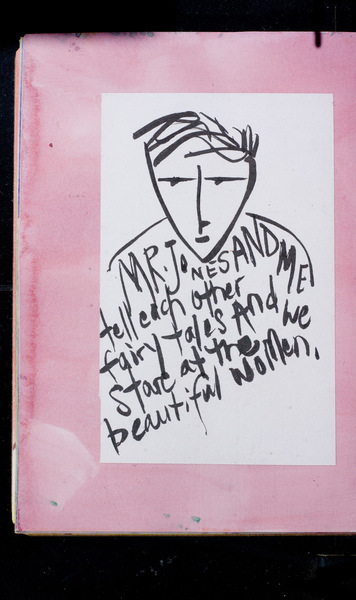 MR. JONES AND ME
tell each other
fairy tales And we
stare at the
beautiful women.